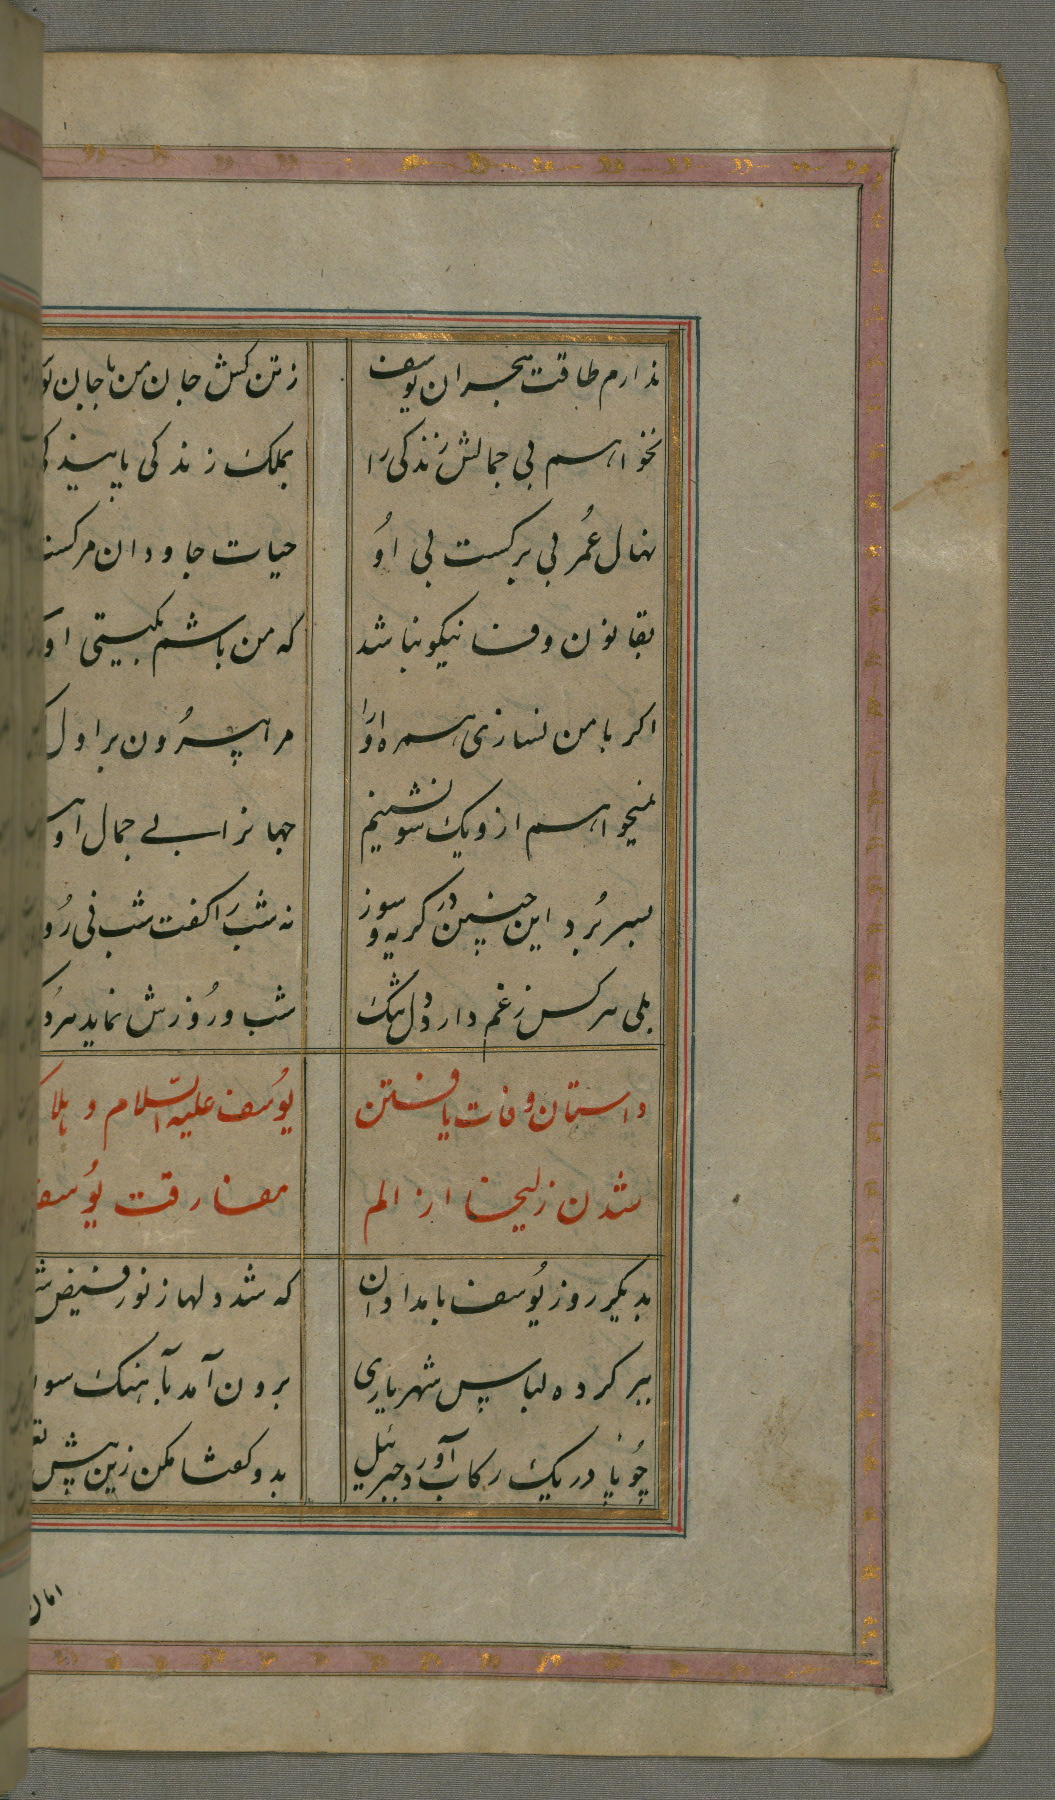 ندارم طاقت هجران یوسف ز تن کش جان من با جان
نخواهم بی جمالش زندکی را بملک زندکی پایندکی
نهال عُمر بی برکست بی اوُ حیات جاودان مرکست
بقانون وفا نیکو نباشد که من باشم بکیتی او
اکر با من نسازی همره او را مرا بیرُون بر اول
نمیخواهم ازو یک سو نشینم جهانرا بے جمال او
بسر بُرد این چنین در کریه و سوز نه شب را کفت شب نی رُو
بلی هرکس زغم دارد دل تنک شب و رُوزش نماید هردُ
داستان وفات یافتن یوُسف علیه السّلام و هلاک
شدن زلیخا از الم مفارقت یوُسف
بدیکر روز یوُسف بامدادان که شد دلها ز نور فیض
ببر کرده لباس شهریاری برون آمد بآهنک سوا
چوُ پا در یک رکاب آورد جبرئیل بدو کفتا مکن زین پیش
امان